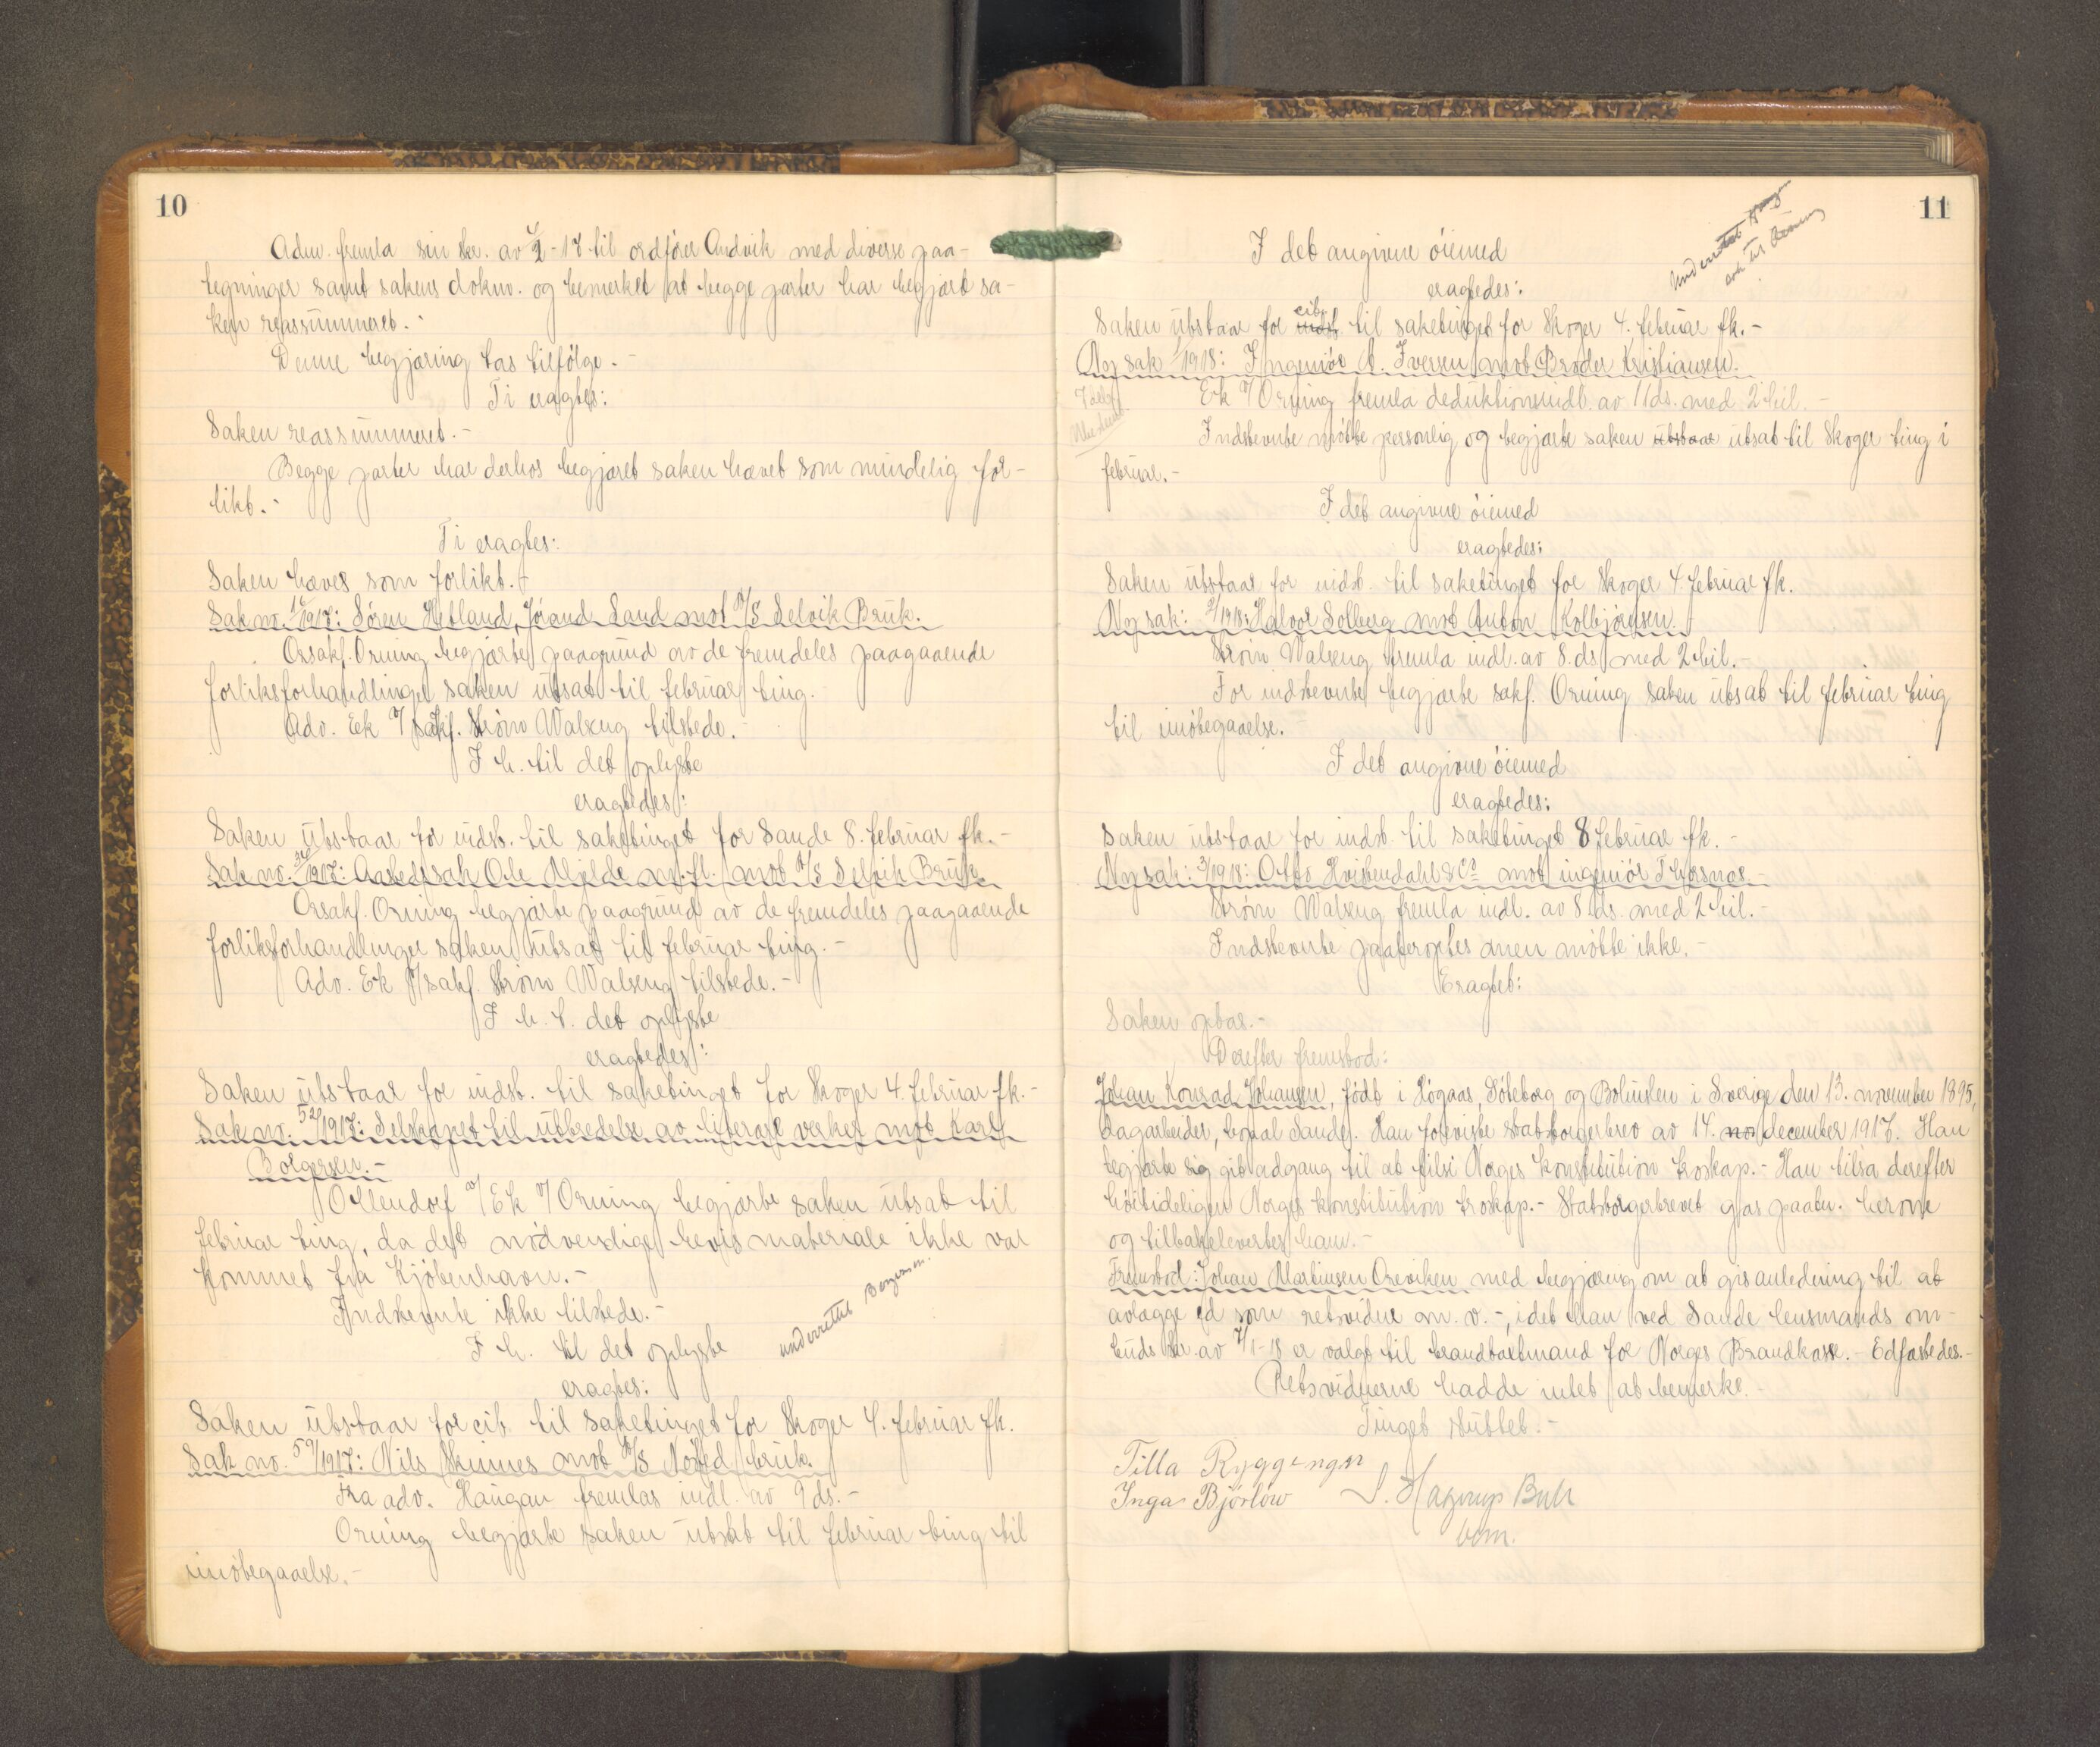 10
Adm. fremla sin skr. av 4/2-17 til ordfører Andvik med diverse paa-
tegninger samt sakens dokum. og bemerket at begge parter har begjært sa-
ken reassummeret.-
Denne begjæring tas tilfølge.-
Ti eragtes:
Saken reassummeret.-
Begge parter har derhos begjæret saken hævet som mindelig for-
likt.-
Ti eragtes:
Saken hæves som forlikt.-
Sak no. /1917: Søren Hetland, Jørand Sand mot A/S Selvik Bruk.
Orsakf. Orning begjærte paagrund av de fremdeles paagaaende
forliksforhandlinger saken utsat til februar ting.-
Adv. Eek v/ sakf. Strøm Walseng tilstede.-
I h. til det oplyste
eragtedes:
Saken utstaar for indst. til saketinget for Sande 8. februar fk.-
Sak no. /1917: Arbeidssak Ole Mjelde m. fl. mot A/S Selvik Bruk.
Orsakf. Orning begjærte paagrund av de fremdeles paagaaende
forliksforhandlinger saken utsat til februar ting.-
Adv. Ek v/ sakf. Strøm Walseng tilstede.-
I h. t. det oplyste
eragtedes:
Saken utstaar for indst. til saketinget for Skoger 4. februar fk.-
Sak no. 52/1917: Selskapet til utbredelse av literære verker mot Karl
Borgersen.-
Ollendorf v/ Ek v/ Orning begjærte saken utsat til
februar ting, da det nødvendige bevismateriale ikke var
kommet fra Kjøbenhavn.-
Indstevnte ikke tilstede.-
underrettet Borgersen.
I h. til det oplyste
eragtes:
Saken utstaar for cit. til saketinget for Skoger 4. februar fk.
Sak no. 59/1917: Nils Skinnes mot A/S Nøsted bruk.
Fra adv. Haugan fremlas indl. av 9 ds.-
Orning begjærte saken utsat til februar ting til
imøtegaaelse.-
11
Underrettet
I det angivne øiemed
eragtedes:
Saken utstaar for cit. indst. til saketinget for Skoger 4. februar fk.-
Ny sak 1/1918: Ingeniør A. Iversen mot Brødr. Kristiansen.
Ek v/ Orning fremla deduktionsindl. av 11 ds. med 2 bil.-
Indstevnte møtte personlig og begjærte saken utstaar utsat til Skoger ting i
februar.-
I det angivne øiemed
eragtedes:
Saken utstaar for indst. til saketinget for Skoger 4. februar fk.
Ny sak: 2/1918: Halvor Solberg mot Anton Kolbjørnsen.
Strøm Walseng fremla indl. av 8. ds. med 2 bil.-
For indstevnte begjærte sakf. Orning saken utsat til februar ting
til imøtegaaelse.
I det angivne øiemed
eragtedes:
Saken utstaar for indst. til saketinget 8 februar fk.-
Ny sak: 3/1918: Otto Hvitendahl & Co mot ingeniør Thorsnes.-
Strøm Walseng fremla indl. av 8. ds. med 2 bil.-
Indstevnte paaberoptes men møtte ikke.-
Eragtet:
Saken optas.-
Derefter fremstod:
Johan Konrad Johansen, født i Høgaas, Gøteborg og Bohuslen i Sverige den 13. november 1895,
dagarbeider, bopæl Sande. Han foreviste statsborgerbrev av 14. no december 1917. Han
begjærte sig git adgang til at tilsi Norges konstitution troskap.- Han tilsa derefter
høitideligen Norges konstitution troskap.- Statsborgerbrevet gas paatn. herom
og tilbakelevertes ham.-
Fremstod: Johan Martinsen Oreviken med begjæring om at gis anledning til at
avlægge ed som retsvidne m. v.-, idet han ved Sande lensmands om-
buds skr. av 7/1-18 er valgt til brandtakstmand for Norges Brandkasse.- Edfæstedes.-
Retsvidnerne hadde intet at bemerke.
Tinget sluttet.-
Tilla Ryggengen
Inga Bjørløw S. Hagerup Bull
kom.